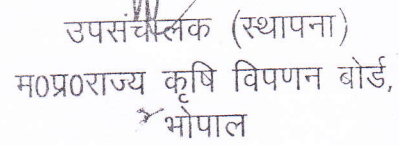 उपसंचालक (स्थापना)
म0प्र0राज्य कृषि विपणन बोर्ड,
भोपाल